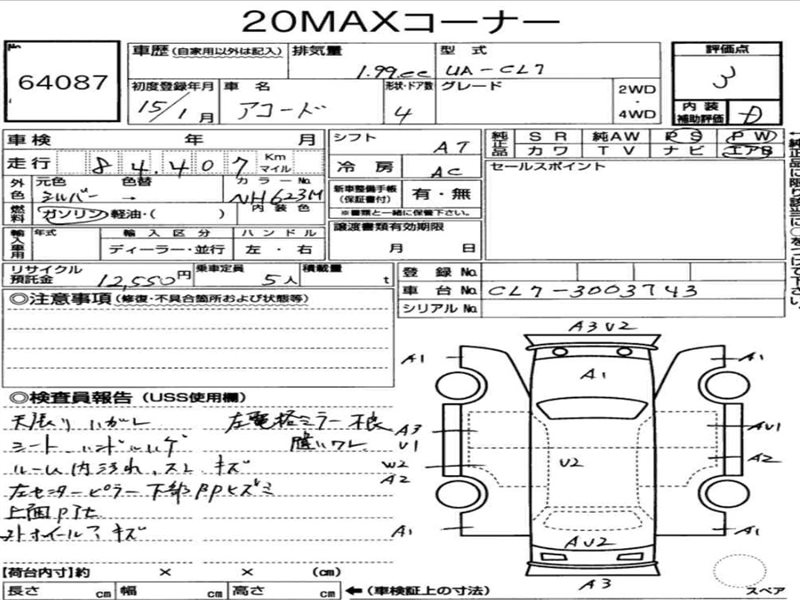 20MAXコーナー
No. 64087
車歴(自家用以外は記入) 排気量 1.99cc 型式 UA-CL7 評価点 3
初度登録年月 15/1月 車名 アコード 形状・ドア数 4 グレード 2WD・4WD 内装補助評価 D
車検 年 月 シフト AT 純正品 SR 純AW PS PW
走行 84,407 Km マイル 冷房 AC カワ TV ナビ エアB
外色 元色 シルバー 色替 → カラーNo. NH623M 新車整備手帳(保証書付) 有・無 セールスポイント
燃料 ガソリン・軽油・( ) 内装色 ※書類と一緒に保管下さい。
輸入車用 年式 輸入区分 ハンドル 譲渡書類有効期限
ディーラー・並行 左・右 月 日
リサイクル預託金 12,550円 乗車定員 5人 積載量 t 登録No.
車台No. CL7-3003743
シリアルNo.
◎注意事項(修復・不具合箇所および状態等)
A3 U2
A1 A1 A1
◎検査員報告(USS使用欄)
天張り ハガレ 左電格ミラー不良
シート、ハンドルハゲ
ルーム内汚れ、スレ キズ
左センターピラー下部PPヒズミ
A3 U1 AU1
W2 A2 U2 A2
A1 A1
AU2
A3
【荷台内寸】約 × × (cm)
長さ cm 幅 cm 高さ cm ←(車検証上の寸法) スペア